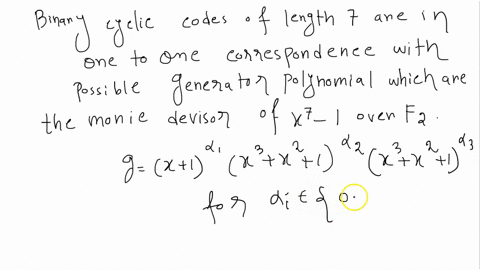 Binary cyclic codes of length 7 are in
one to one correspondence with
possible generator polynomial which are
the monic devisor of x⁷-1 over F₂.
g = (x+1)^α₁ (x³+x²+1)^α₂ (x³+x²+1)^α₃
for αᵢ ∈ { 0.